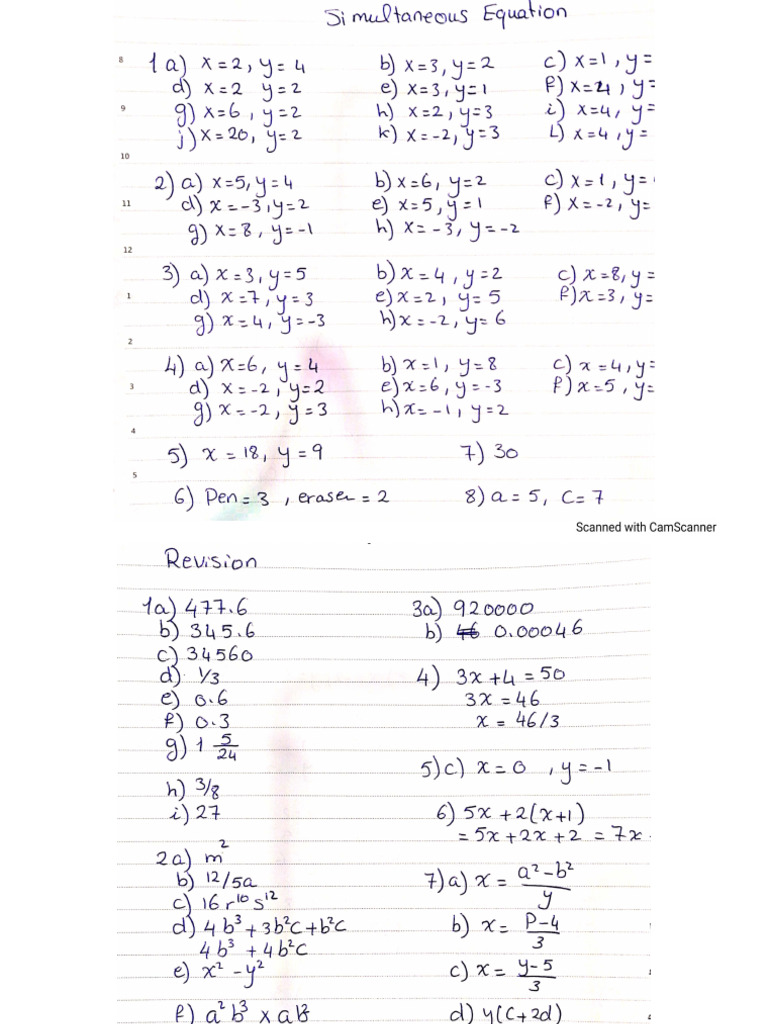 Simultaneous Equation
8
1 a) x=2, y=4 b) x=3, y=2 c) x=1, y=
d) x=2 y=2 e) x=3, y=1 f) x=4, y=
9
g) x=6, y=2 h) x=2, y=3 i) x=4, y=
j) x=20, y=2 k) x=-2, y=3 L) x=4, y=
10
2) a) x=5, y=4 b) x=6, y=2 c) x=1, y=
11
d) x=-3, y=2 e) x=5, y=1 f) x=-2, y=
g) x=8, y=-1 h) x=-3, y=-2
12
3) a) x=3, y=5 b) x=4, y=2 c) x=8, y=
1
d) x=7, y=3 e) x=2, y=5 f) x=3, y=
g) x=4, y=-3 h) x=-2, y=6
2
4) a) x=6, y=4 b) x=1, y=8 c) x=4, y=
3
d) x=-2, y=2 e) x=6, y=-3 f) x=5, y=
g) x=-2, y=3 h) x=-1, y=2
4
5) x=18, y=9 7) 30
5
6) Pen=3, eraser=2 8) a=5, c=7
Scanned with CamScanner
Revision
1a) 477.6 3a) 920000
b) 345.6 b) 46 0.00046
c) 34560
d) 1/3 4) 3x+4=50
e) 0.6 3x=46
f) 0.3 x=46/3
g) 1 5/24
5) c) x=0, y=-1
h) 3/8
i) 27 6) 5x+2(x+1)
=5x+2x+2 =7x
2a) m²
b) 12/5a 7) a) x= a²-b²/y
c) 16r¹⁰s¹²
d) 4b³+3b²c+b²c b) x= P-4/3
4b³+4b²c
e) x²-y² c) x= y-5/3
f) a²b³ x ab d) y(c+2d)